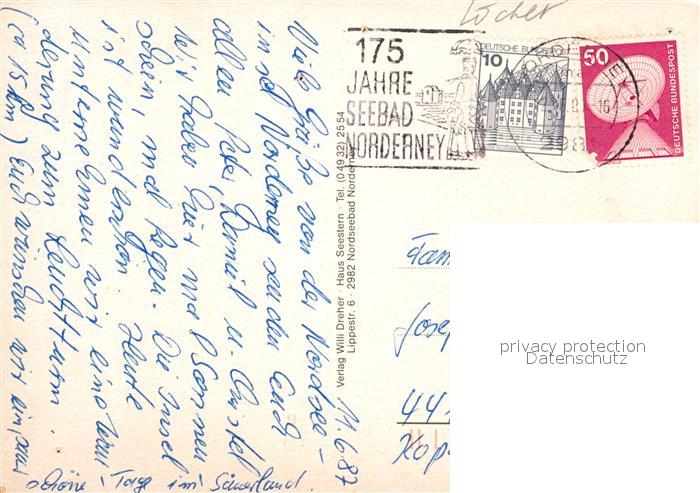 Löcher
175
JAHRE
SEEBAD
NORDERNEY
10
DEUTSCHE BUNDESPOST
50
DEUTSCHE BUNDESPOST
Viele Grüße von der Nordsee-
insel Norderney senden Euch
allen Peter, Daniel u. Christel
Wir haben hier mal Sonnen
schein, mal Regen. Die Insel
ist wunderschön. Heute
unternehmen wir eine Wan
derung zum Leuchtturm.
(ca 15 km) Euch wünschen wir ein paar
schöne Tage im Sauerland.
11.6.87
Verlag Willi Dreher · Haus Seestern · Tel. (04932) 2554
Lippestr. 6 · 2982 Nordseebad Norderney
Fam
Josep
44
Kop
privacy protection
Datenschutz